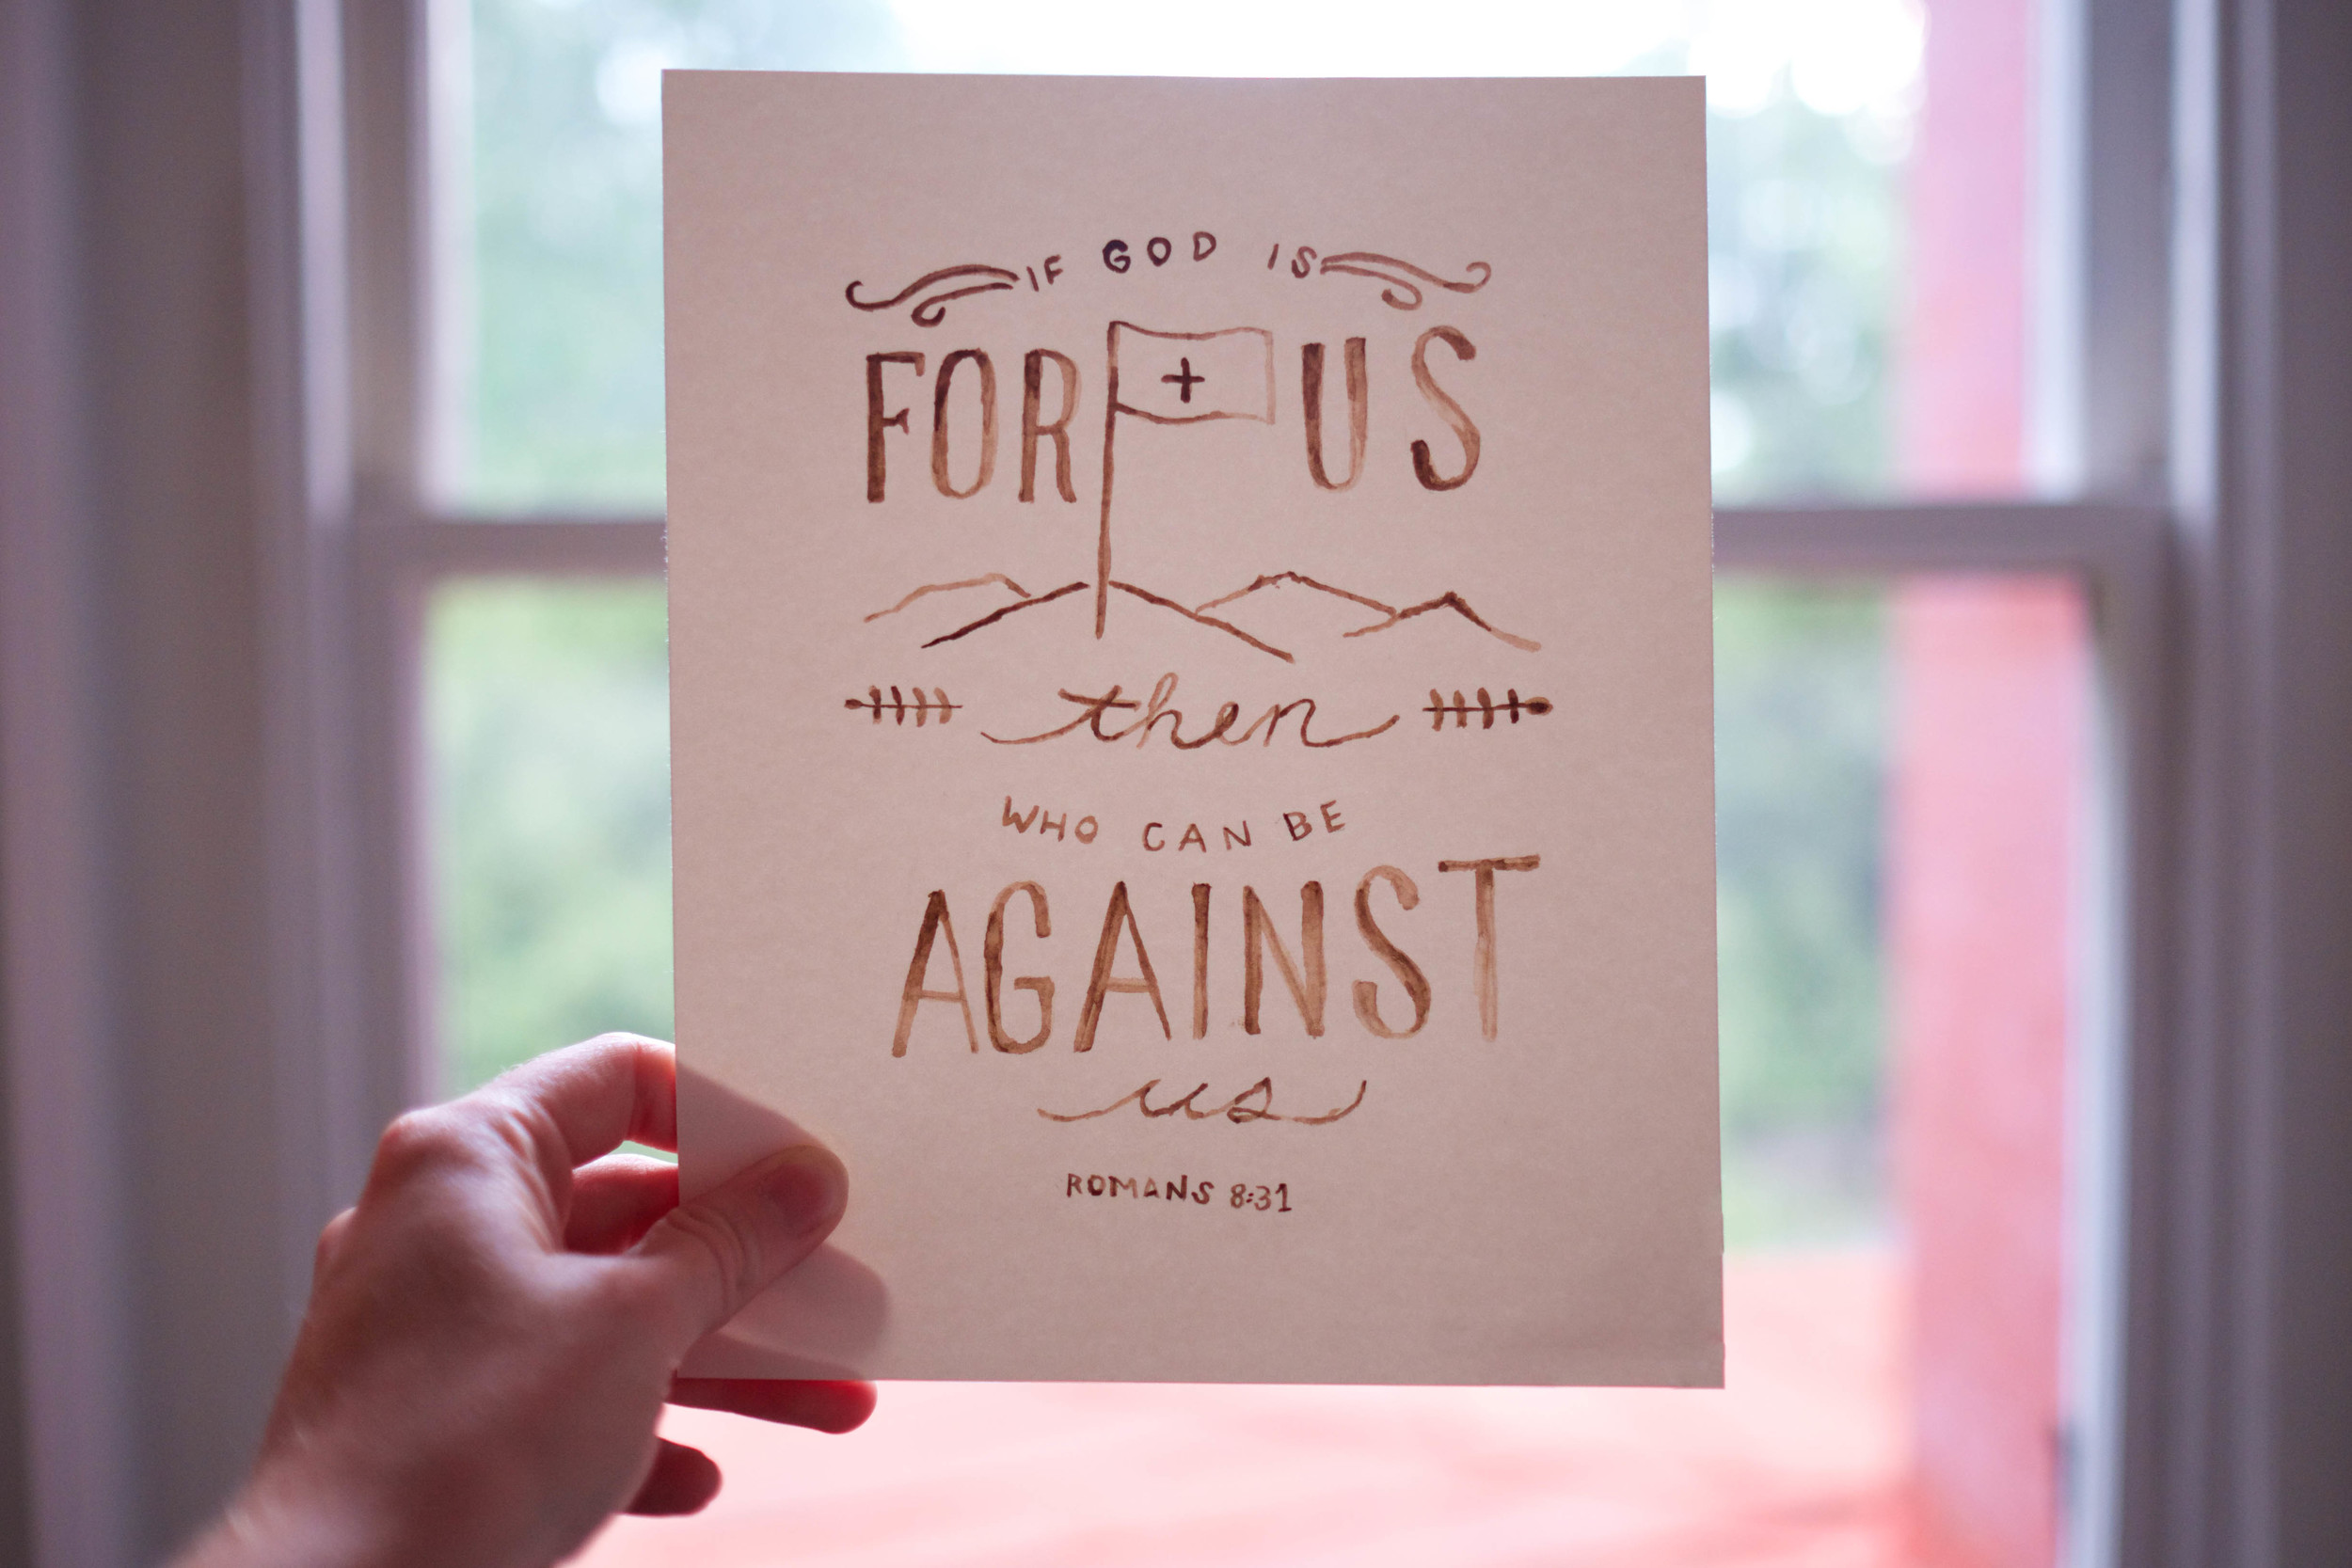 IF GOD IS
FOR US
then
WHO CAN BE
AGAINST
us
ROMANS 8:31